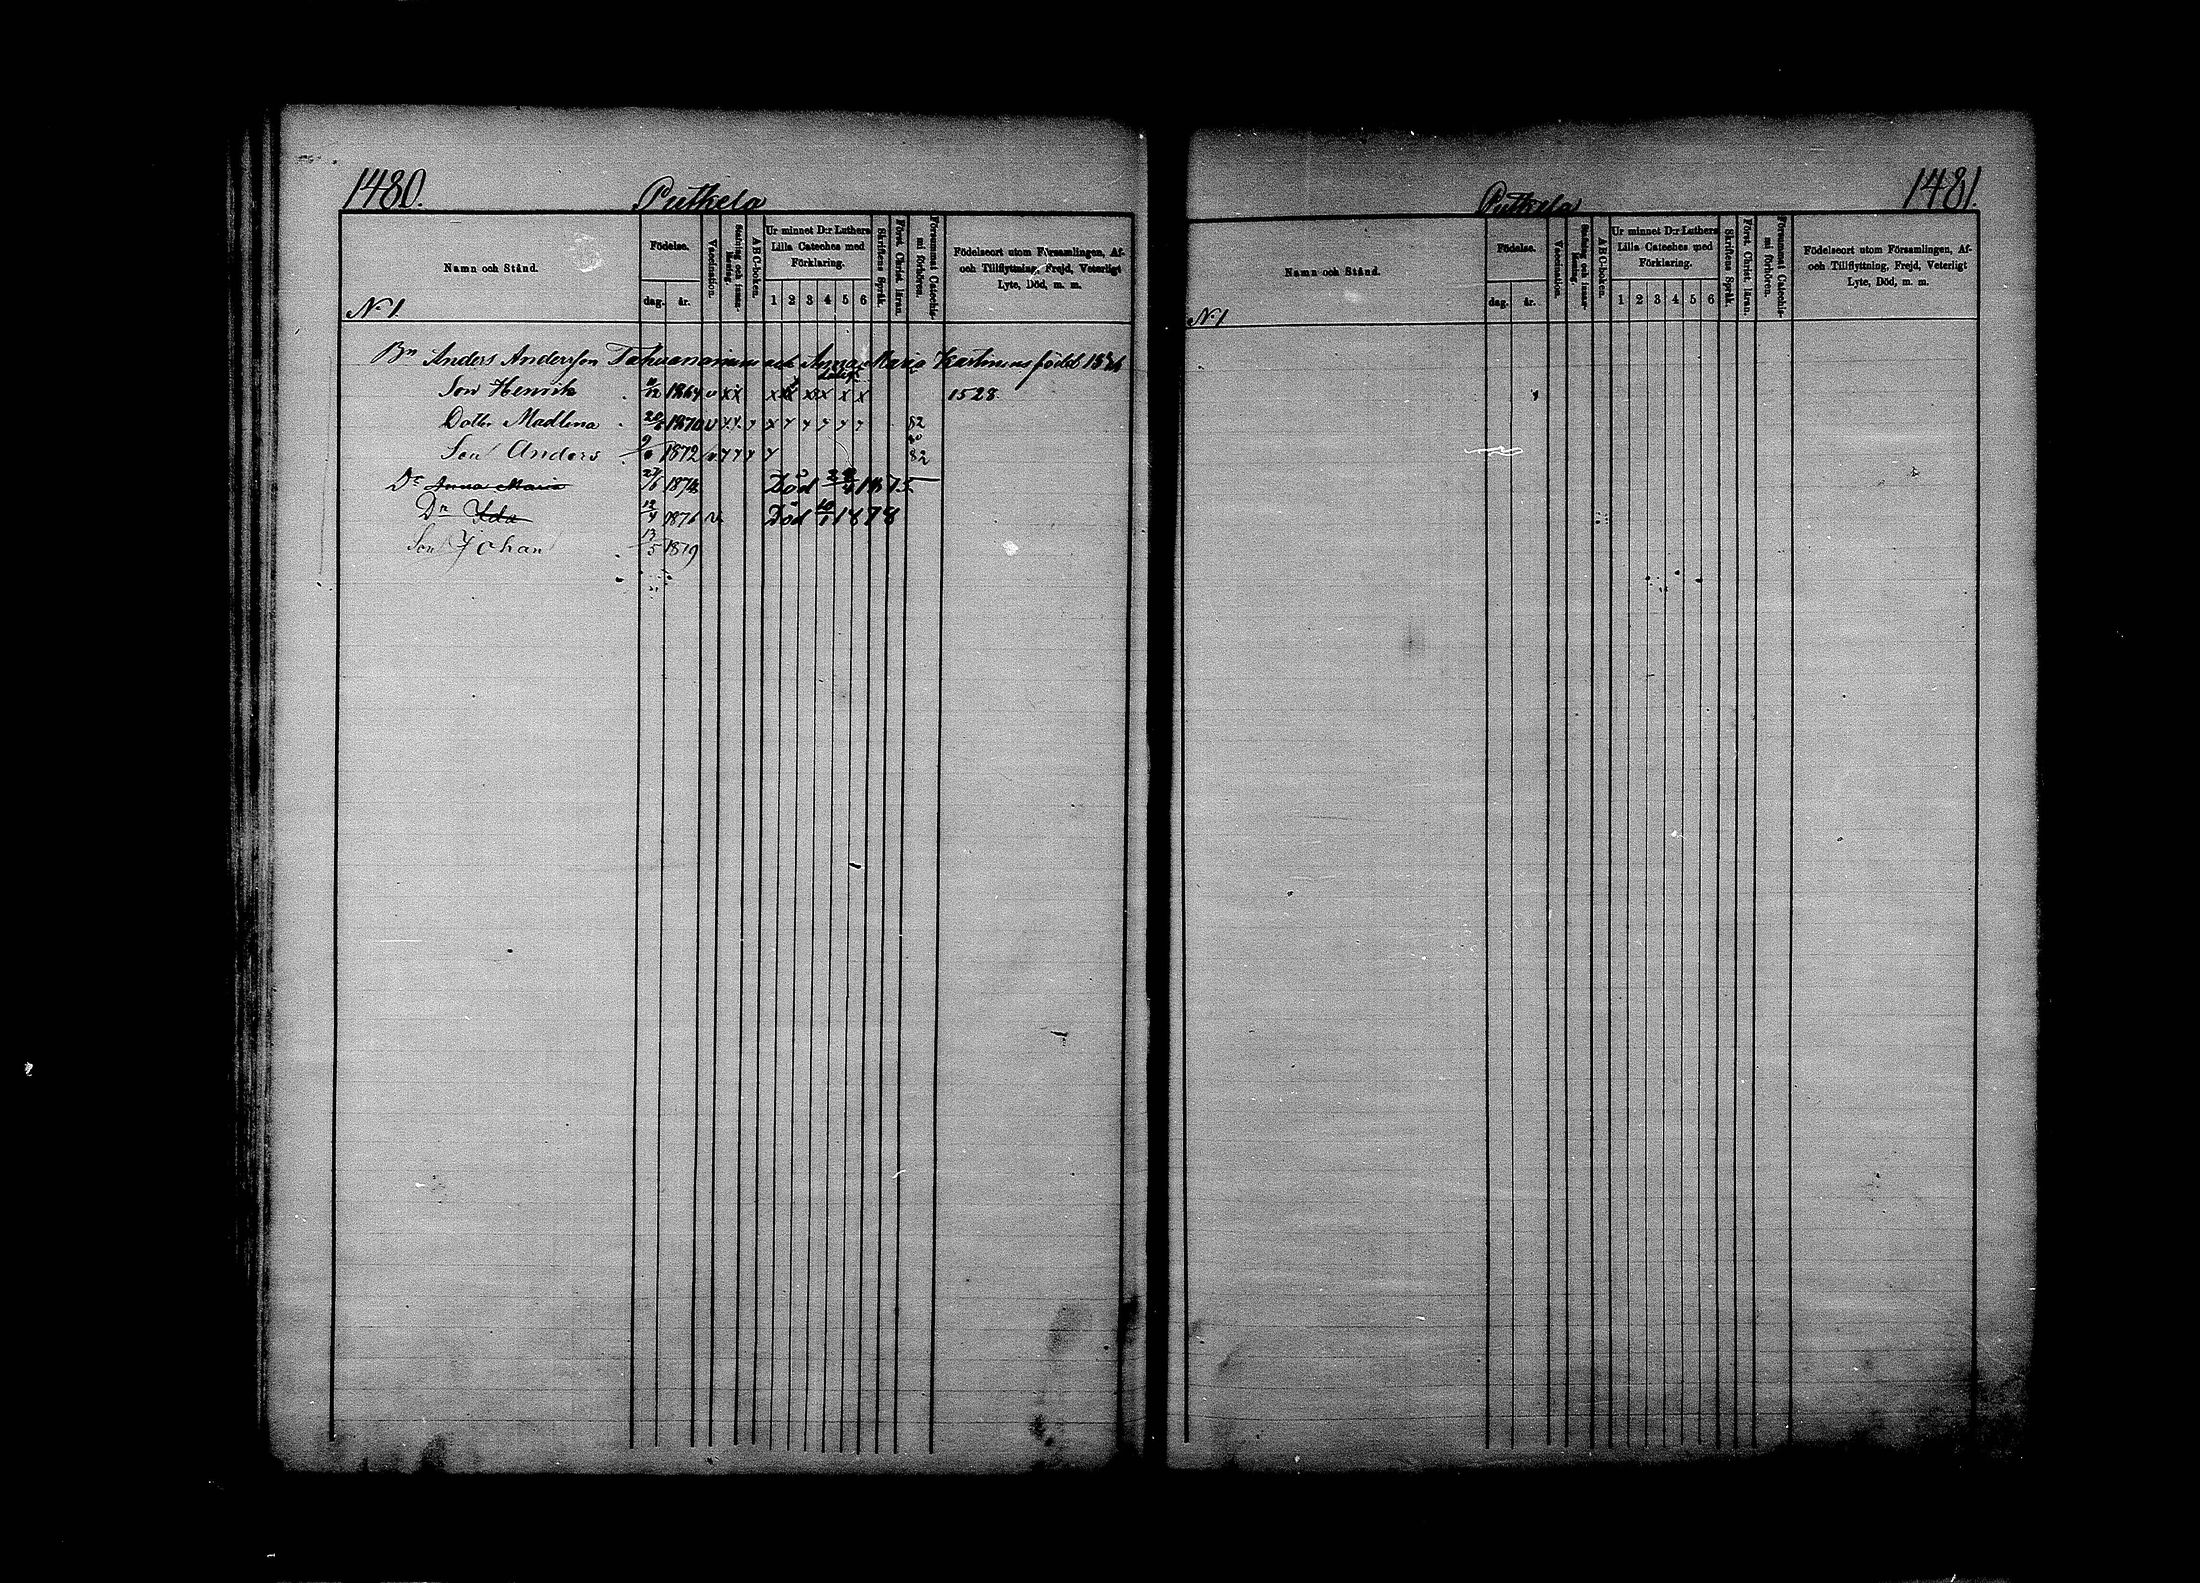 1480.
Puthela
Namn och Stånd.
Födelse.
dag.
år.
Vaccination.
Stafning och innan-läsning.
A B C-boken.
Ur minnet D:r Luthers
Lilla Cateches med
Förklaring.
1 2 3 4 5 6
Skriftens Språk.
Först. Christ. läran.
Försummat Catechis-
mi förhören.
Födelseort utom Församlingen, Af-
och Tillflyttning, Frejd, Veterligt
Lyte, Död, m. m.
N 1.
Bn Anders Andersson och Anna Maria född
Son Henrik 1864 v x x x x x x x 1528
Dotter Madlena 1870 v 82
Son Anders 1872 82
Dr Anna Maria Död 1875
Dr Ida 12/4 1876 v Död 10/1 1878
Son Johan 13/5 1879
1481.
Puthela
Namn och Stånd.
Födelse.
dag.
år.
Vaccination.
Stafning och innan-läsning.
A B C-boken.
Ur minnet D:r Luthers
Lilla Cateches med
Förklaring.
1 2 3 4 5 6
Skriftens Språk.
Först. Christ. läran.
Försummat Catechis-
mi förhören.
Födelseort utom Församlingen, Af-
och Tillflyttning, Frejd, Veterligt
Lyte, Död, m. m.
N 1